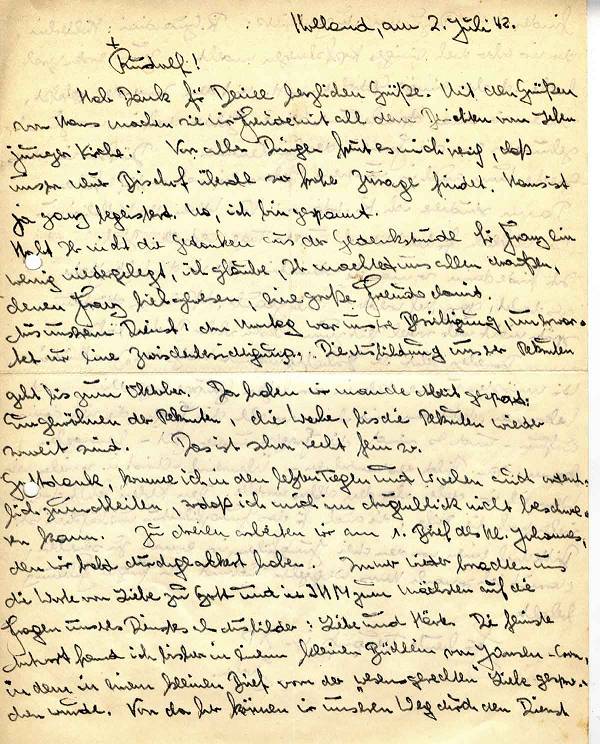 Holland, am 2. Juli 42.
+
Rudolf!
Hab Dank für Deine herzlichen Grüße. Mit den Grüßen
von Hans machen sie mir Freude mit all dem Berichten vom Leben
junger Kirche. Vor allen Dingen freut es mich riesig, daß
unser neuer Bischof überall so frohe Zusage findet. Hans ist
ja ganz begeistert. Na, ich bin gespannt.
Habt Ihr nicht die Gedanken aus der Gedenkstunde für Franz ein
wenig niedergelegt, ich glaube, Ihr machtet uns allen draußen,
denen Franz lieb gewesen, eine große Freude damit.
Aus unserem Dienst: den Montag war unsre Besichtigung,
tet nur eine Zwischenbesichtigung. Die Ausbildung unserer Rekruten
geht bis zum Oktober. Da haben wir manche Arbeit gespart:
Eingewöhnen der Rekruten, die Woche, bis die Rekruten wieder
soweit sind. Das ist schon recht fein so.
Gottdank, komme ich in den letzten Tagen und Wochen auch ordent-
lich zum Arbeiten, sodaß ich mich im Augenblick nicht beschwe-
ren kann. Zu dreien arbeiten wir am 1. Brief des hl. Johannes,
den wir bald durchgeackert haben. Immer wieder brachten uns
die Worte von Liebe zu Gott und in IHM zum Nächsten auf die
Fragen unseres Dienstes als Ausbilder: Liebe und Härte. Die feinste
Antwort fand ich bisher in einem kleinen Büchlein von Jansen-Cron,
in dem in einem kleinen Brief von der "wesensgerechten" Liebe gespro-
chen wurde. Von da her können wir unseren Weg durch den Dienst